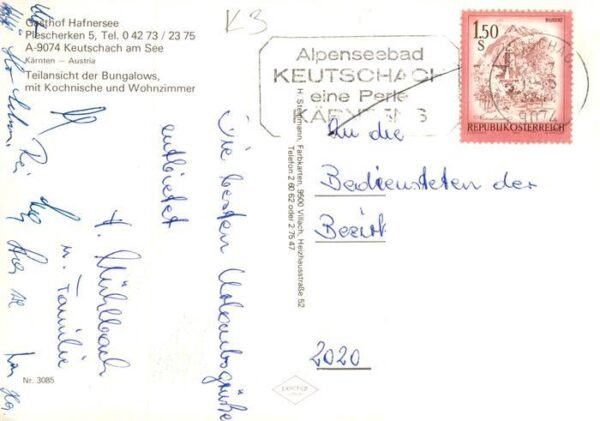 Gasthof Hafnersee
Plescherken 5, Tel. 0 42 73 / 23 75
A-9074 Keutschach am See
Kärnten – Austria
Teilansicht der Bungalows,
mit Kochnische und Wohnzimmer
K3
Alpenseebad
KEUTSCHACH
eine Perle
KÄRNTENS
1,50
S
BLUDENZ
REPUBLIK ÖSTERREICH
9074
Die besten Urlaubsgrüße
entbietet
Mühlbach
u. Familie
H. Stegmann, Farbkarten, 9500 Villach, Heizhausstraße 52
Telefon 2 60 62 oder 2 75 47
An die
Bediensteten der
Bezirk
2020
Nr. 3085